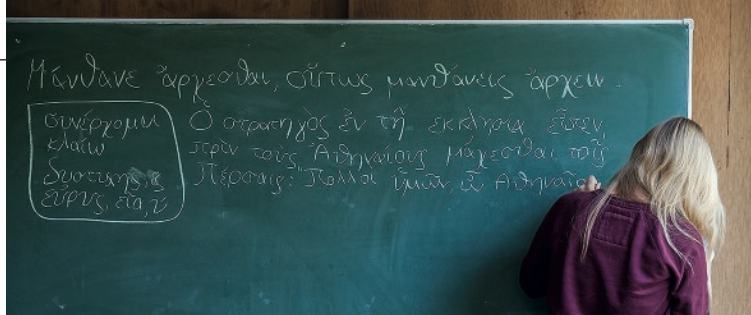 Μάνθανε ἄρχεσθαι, οὕτως μανθάνεις ἄρχειν.
συνέρχομαι
κλαίω
δυστυχής, ές
εὐρύς, εῖα, ύ
Ὁ στρατηγὸς ἐν τῇ ἐκκλησίᾳ εἶπεν,
πρὶν τοὺς Ἀθηναίους μάχεσθαι τοῖς
Πέρσαις: "Πολλοὶ ὑμῶν, ὦ Ἀθηναῖοι